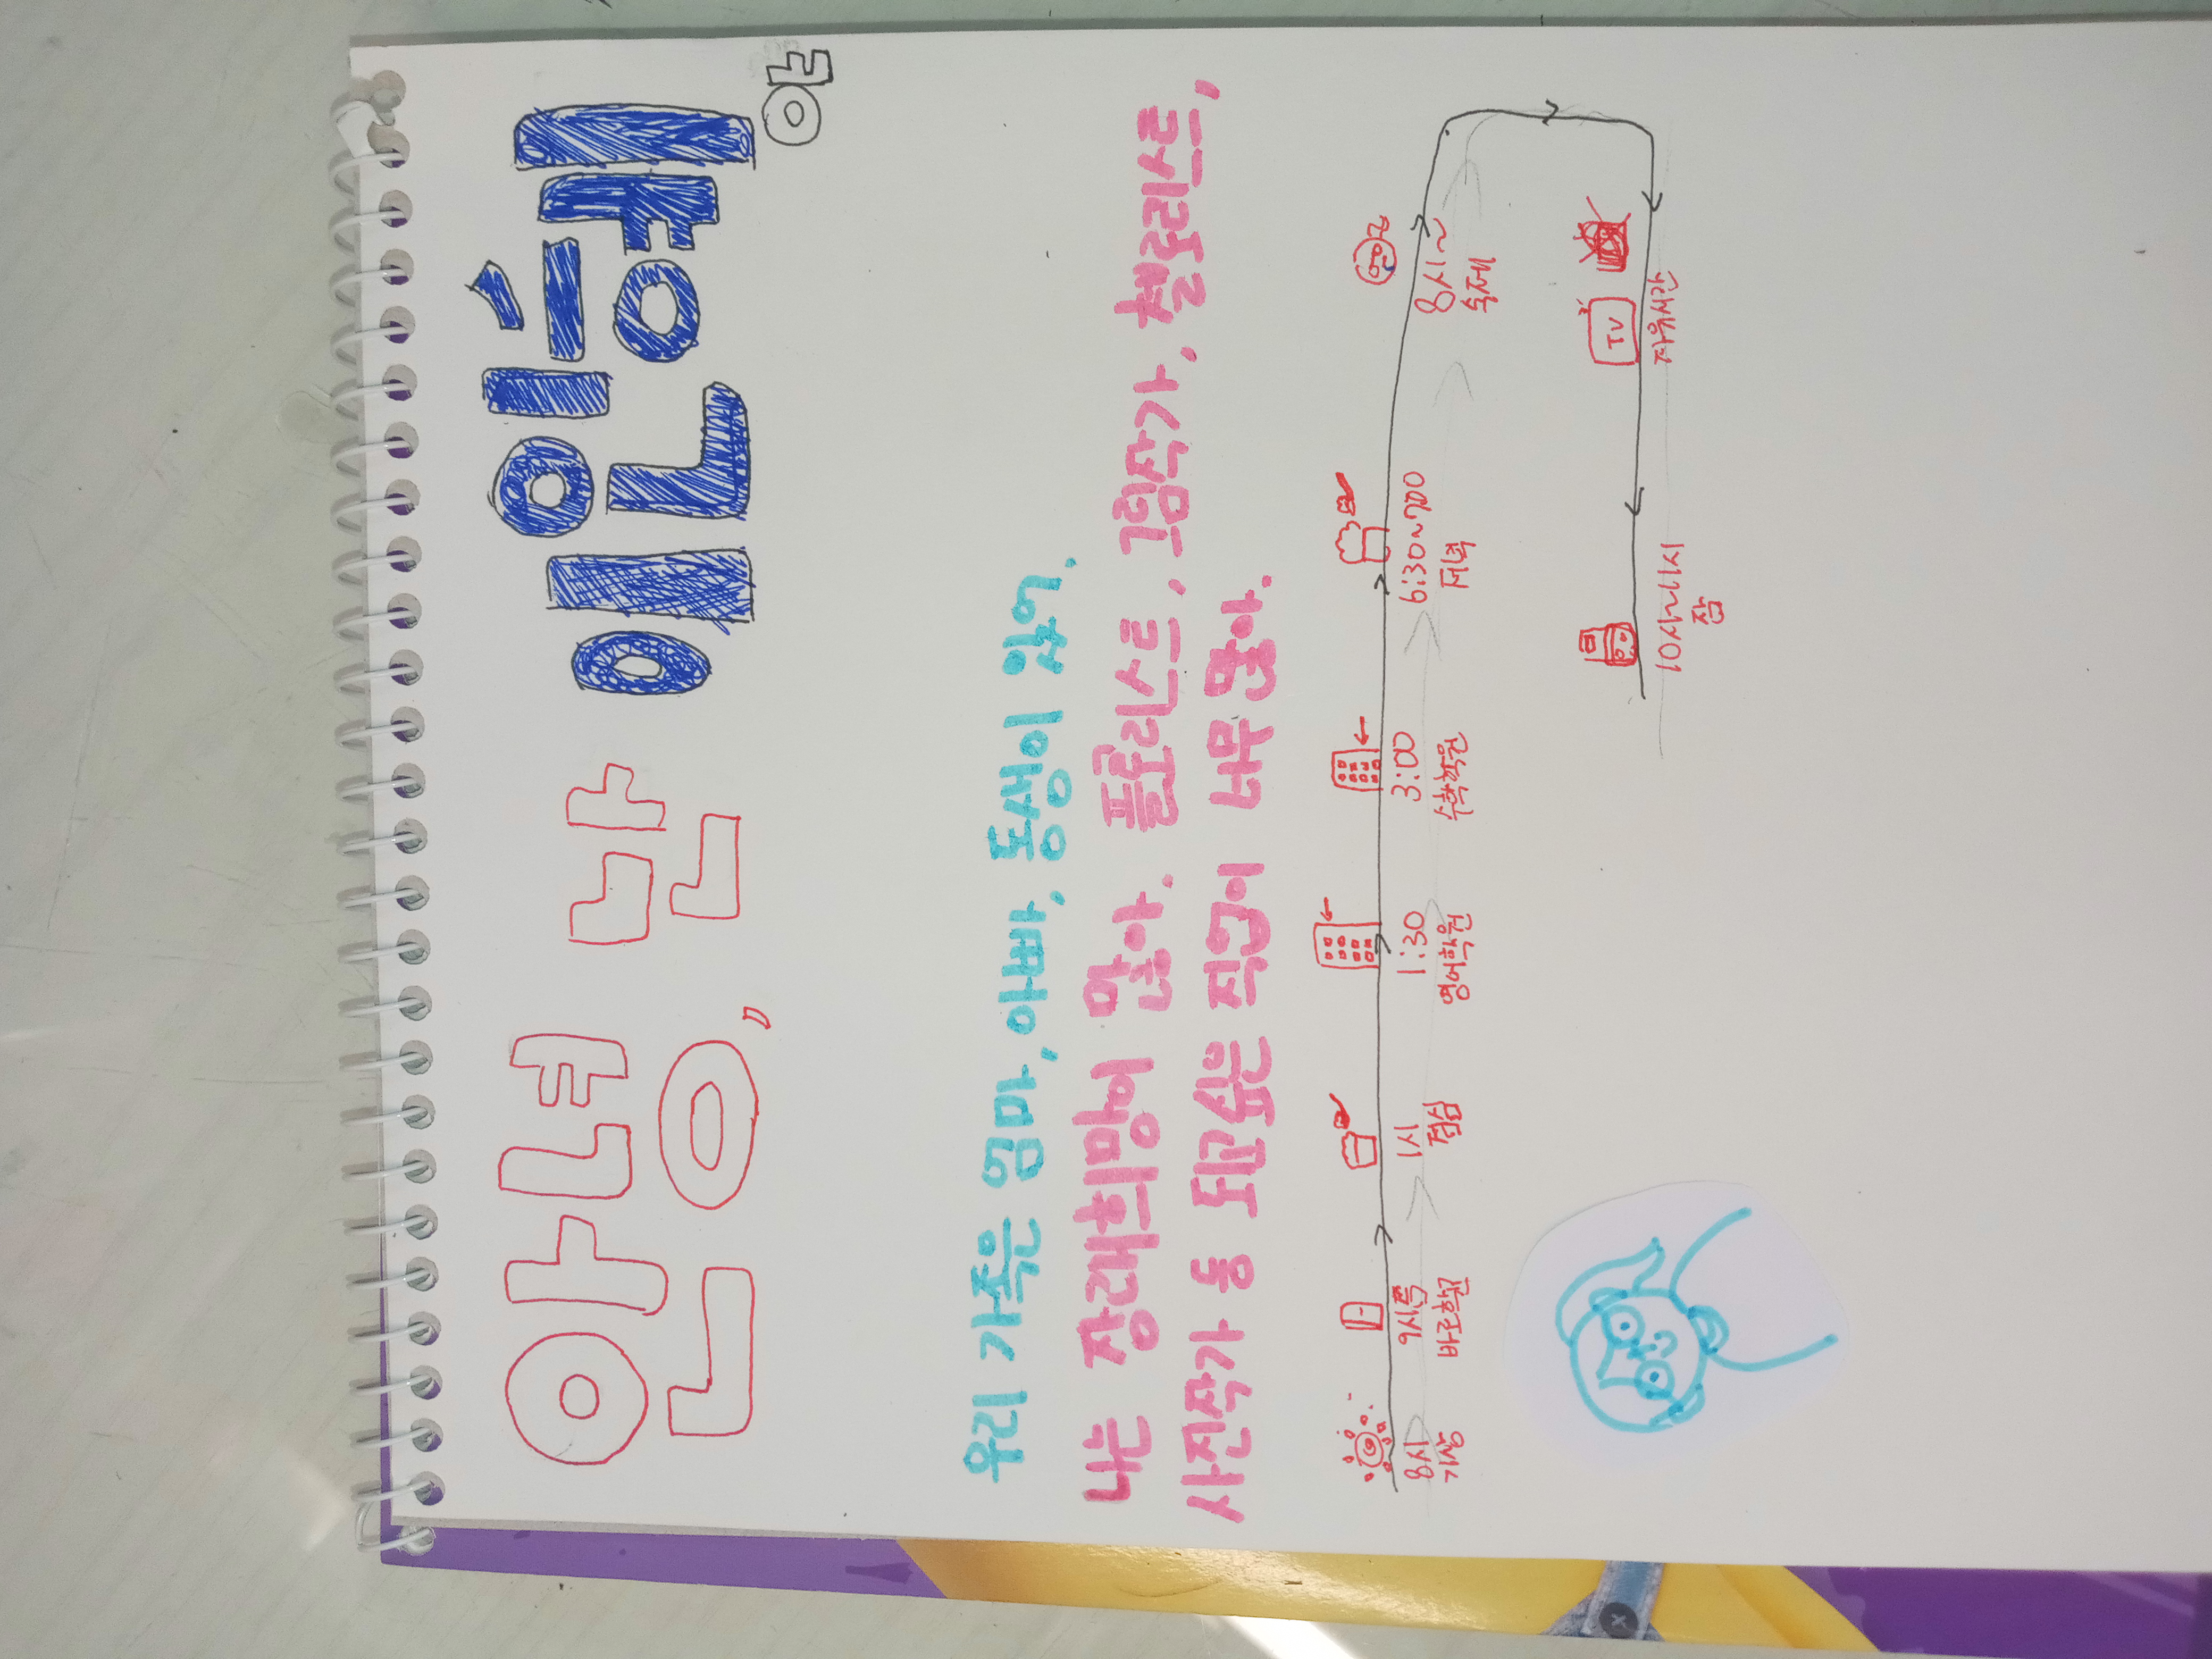 안녕, 난 이인혜야
우리 가족은 엄마, 아빠, 동생이 있어.
나는 장래희망이 많아. 첼리스트,
사진작가 등 되고싶은 직업이 너무 많아.
8시 9시쯤 1시 1:30 3:00 6:30~7:00 8시~
기상 바로학원 점심 영어학원 수학학원 저녁 숙제
TV
자유시간
10시~11시
잠